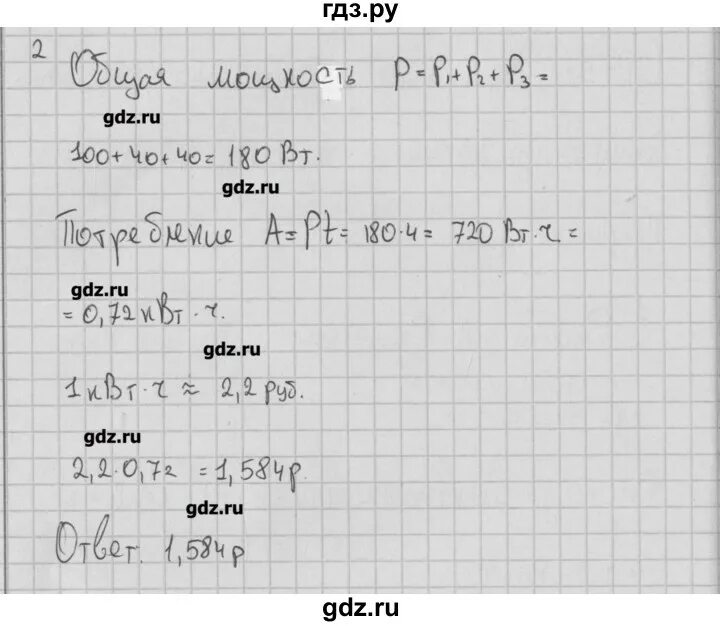 гдз.ру
2
Общая мощность P = P₁ + P₂ + P₃ =
gdz.ru
100 + 40 + 40 = 180 Вт.
gdz.ru
Потребление A = Pt = 180·4 = 720 Вт·ч =
gdz.ru
= 0,72 кВт·ч.
gdz.ru
1 кВт·ч ≈ 2,2 руб.
gdz.ru
2,2·0,72 = 1,584 р.
gdz.ru
Ответ. 1,584 р
gdz.ru